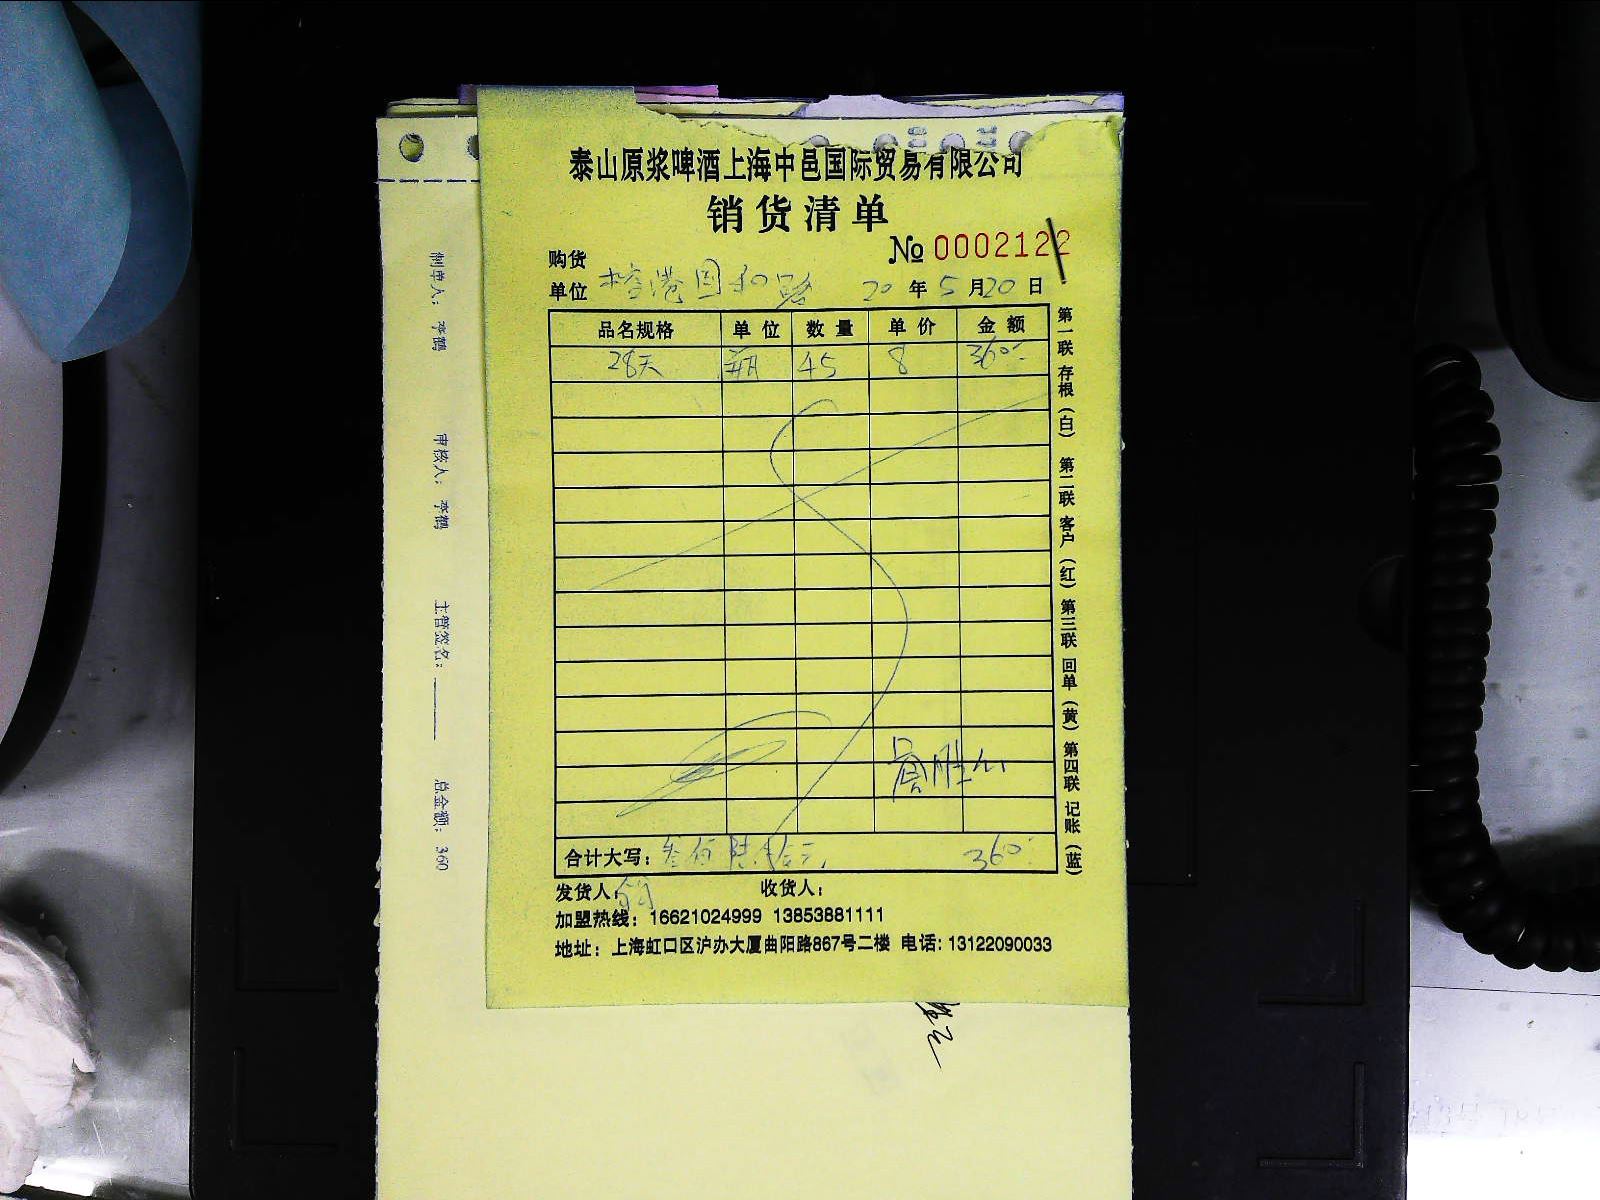 泰山原浆啤酒上海中邑国际贸易有限公司
销货清单
№ 0002122
购货
单位 港国和路 20 年 5 月 20 日
品名规格 单位 数量 单价 金额
28天 瓶 45 8 360
合计大写： 叁佰陆拾元 360
发货人： 收货人：
加盟热线：16621024999 13853881111
地址：上海虹口区沪办大厦曲阳路867号二楼 电话：13122090033
第一联 存根（白） 第二联 客户（红） 第三联 回单（黄） 第四联 记账（蓝）
制单人：李鹤 审核人：李鹤 主管签名： 总金额：360